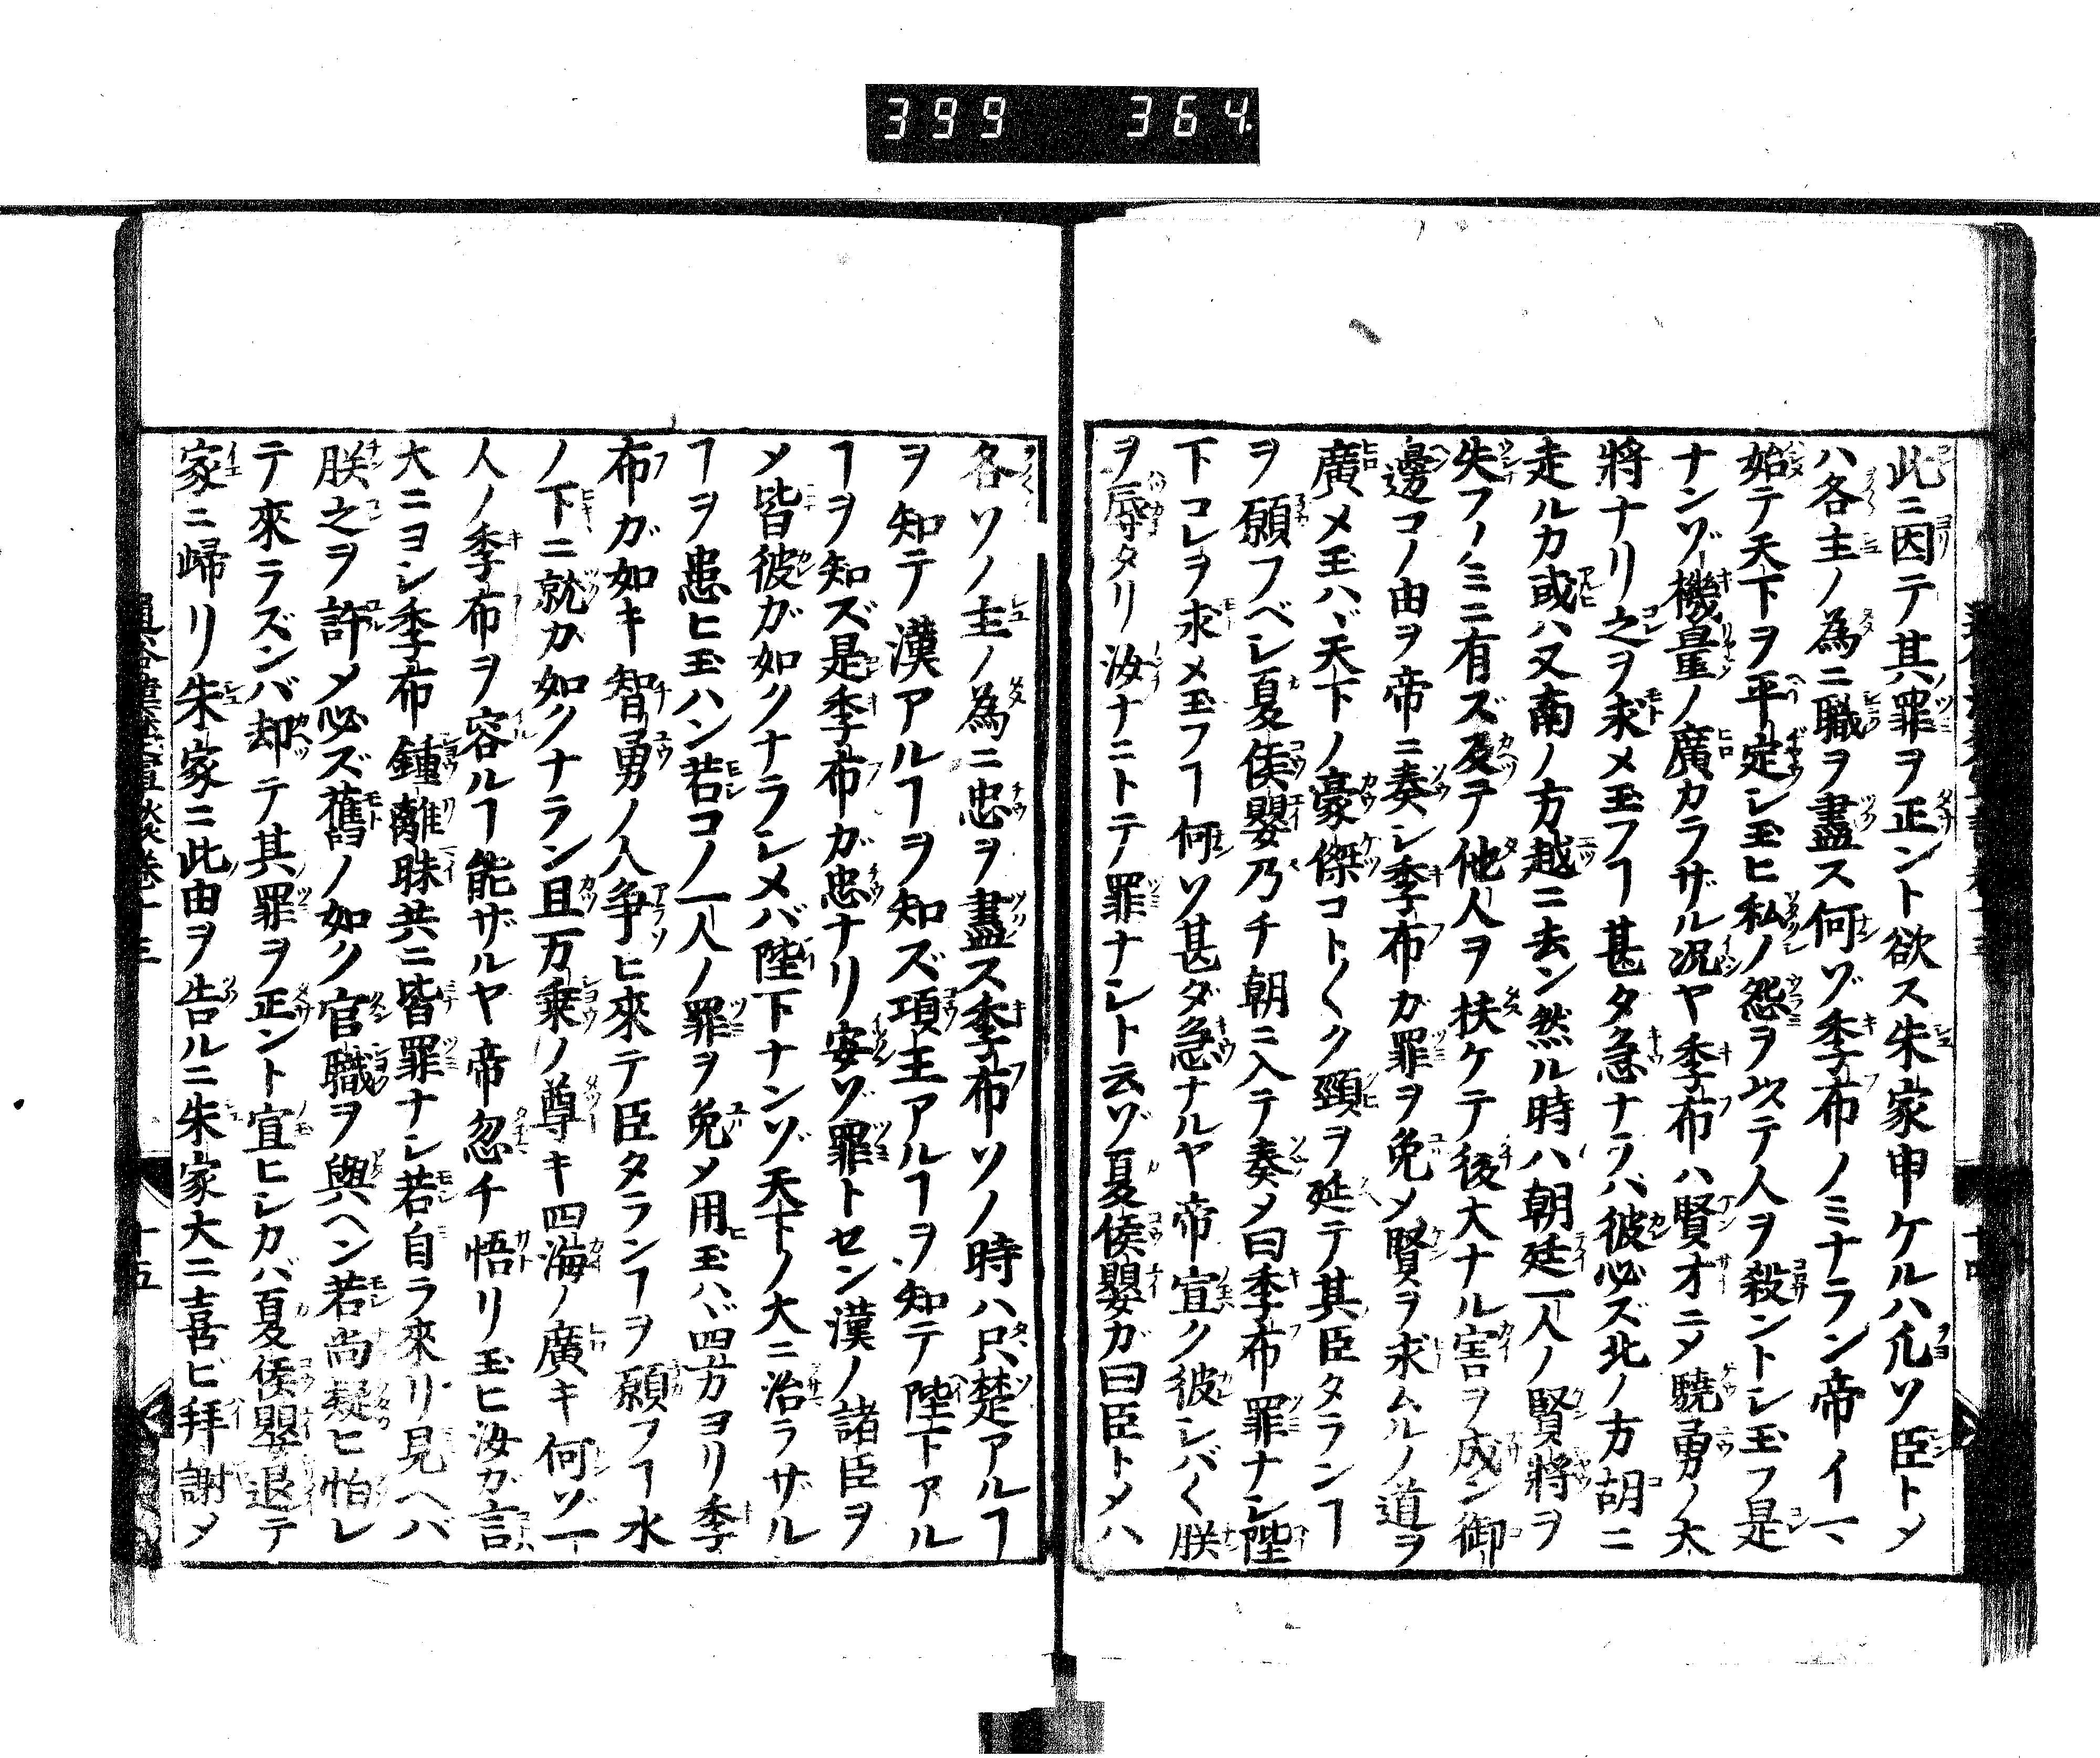 399 364
此ニ因テ其罪ヲ正ント欲ス朱家申ケルハ凢ソ臣トメ
ハ各主ノ為ニ職ヲ盡ス何ゾ季布ノミナラン帝イマ
始テ天下ヲ平定シ玉ヒ私ノ怨ヲ以テ人ヲ殺ントシ玉フ是
ナンゾ機量ノ廣カラザル况ヤ季布ハ賢才ニメ驍勇ノ大
將ナリ之ヲ求メ玉フヿ甚タ急ナラバ彼必ズ北ノ方胡ニ
走ルカ或ハ又南ノ方越ニ去ン然ル時ハ朝廷一人ノ賢將ヲ
失フノミニ有ズ及テ他人ヲ扶ケテ後大ナル害ヲ成ン御
邊コノ由ヲ帝ニ奏シ季布ガ罪ヲ免メ賢ヲ求ムルノ道ヲ
廣メ玉ハヾ天下ノ豪傑コト〱ク頸ヲ延テ其臣タランヿ
ヲ願フベシ夏侯嬰乃チ朝ニ入テ奏メ曰季布罪ナシ陛
下コレヲ求メ玉フヿ何ソ甚ダ急ナルヤ帝宣ク彼シバ〱朕
ヲ辱タリ汝ナニトテ罪ナシト云ゾ夏侯嬰ガ曰臣トメハ
十四
各ソノ主ノ為ニ忠ヲ盡ス季布ソノ時ハ只楚アルヿ
ヲ知テ漢アルヿヲ知ズ項王アルヿヲ知テ陛下アル
ヿヲ知ズ是季布ガ忠ナリ安ゾ罪トセン漢ノ諸臣ヲ
メ皆彼ガ如クナラシメバ陛下ナンゾ天下ノ大ニ治ラザル
ヿヲ患ヒ玉ハン若コノ一人ノ罪ヲ免メ用玉ハヾ四方ヨリ季
布ガ如キ智勇ノ人争ヒ來テ臣タランヿヲ願フヿ水
ノ下ニ就カ如クナラン且万乗ノ尊キ四海ノ廣キ何ゾ一
人ノ季布ヲ容ルヿ能ザルヤ帝忽チ悟リ玉ヒ汝ガ言
大ニヨシ季布鍾離昧共ニ皆罪ナシ若自ラ來リ見ヘバ
朕之ヲ許メ必ズ舊ノ如ク官職ヲ與ヘン若尚疑ヒ怕レ
テ來ラズンバ却テ其罪ヲ正ント宣ヒシカバ夏侯嬰退テ
家ニ帰リ朱家ニ此由ヲ告ルニ朱家大ニ喜ビ拜謝メ
十五